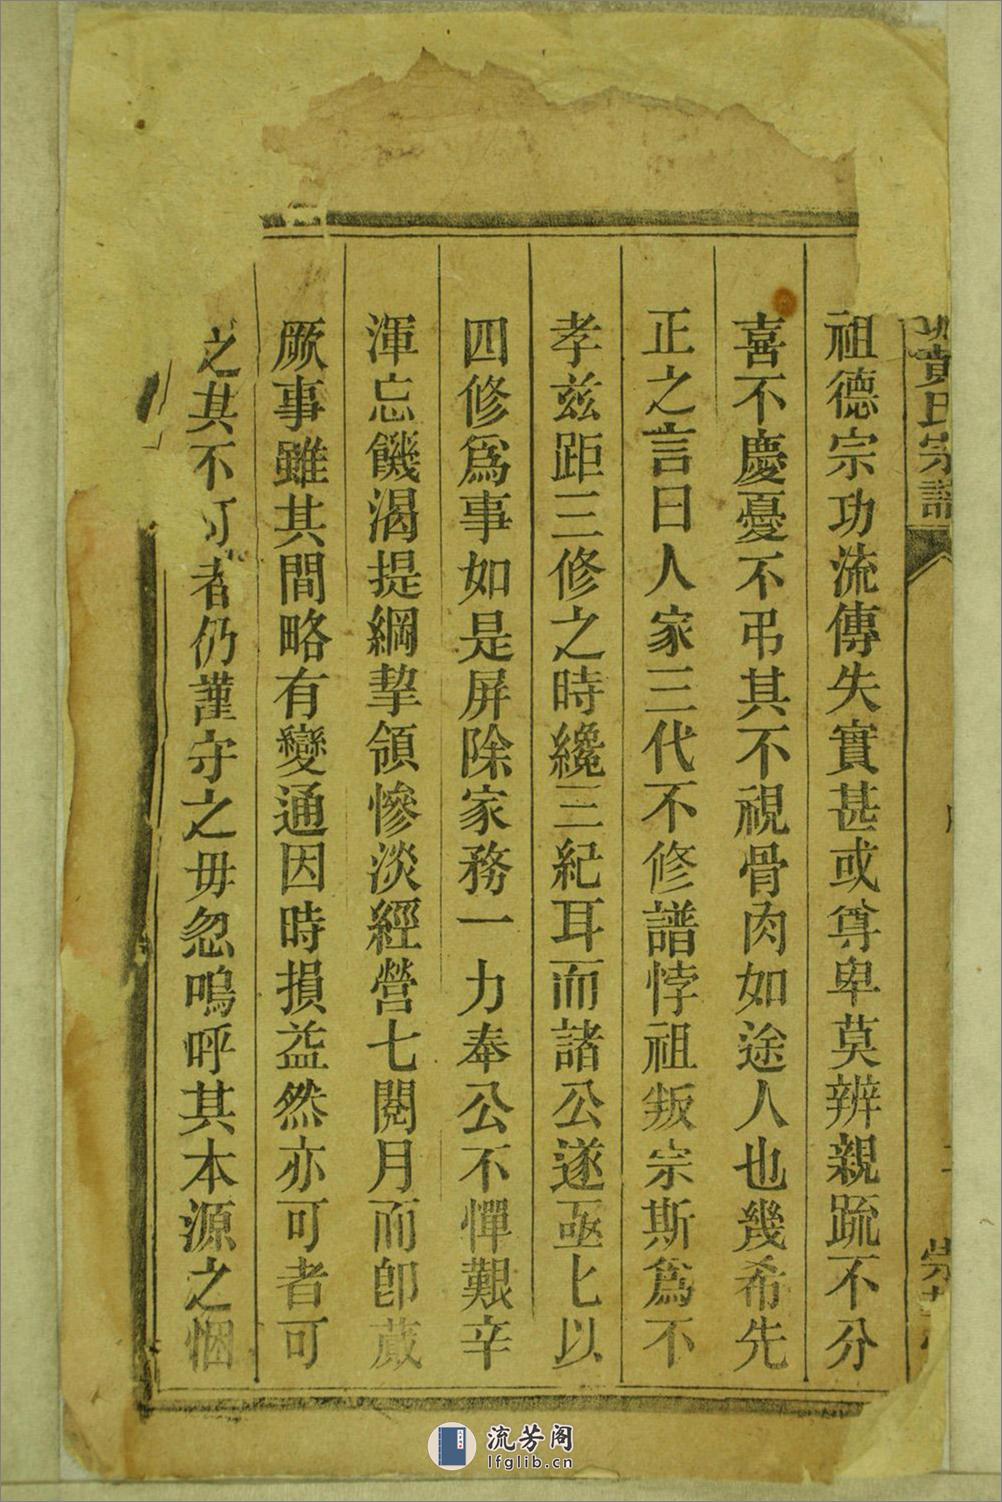 黄氏宗譜
祖德宗功流傳失實甚或尊卑莫辨親䟽不分
喜不慶憂不弔其不視骨肉如途人也幾希先
正之言曰人家三代不修譜悖祖叛宗斯爲不
孝兹距三修之時纔三紀耳而諸公遂亟亟以
四修爲事如是屏除家務一力奉公不憚艱辛
渾忘饑渴提綱挈領慘淡經營七閱月而卽蕆
厥事雖其間略有變通因時損益然亦可者可
之其不可者仍謹守之毋忽嗚呼其本源之悃
流芳阁
lfglib.cn